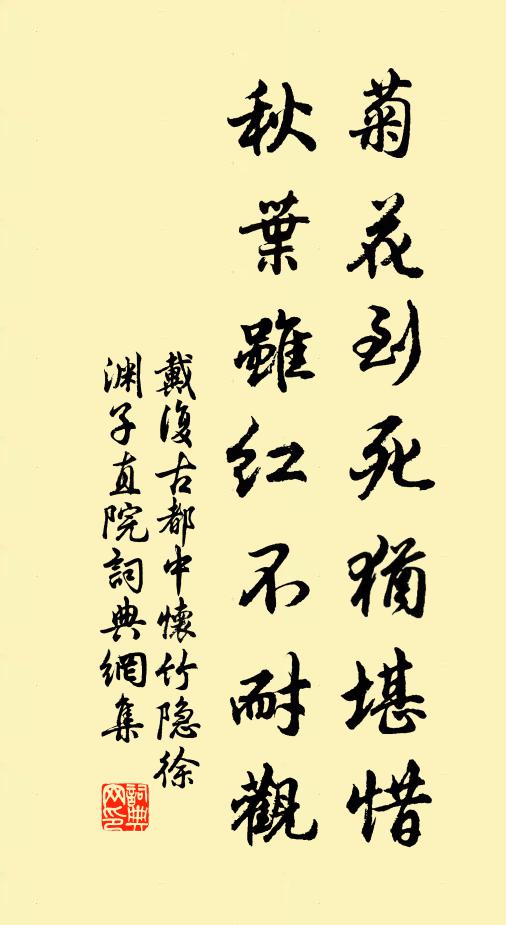 菊花到死猶堪惜
秋葉雖红不耐觀
戴復古都中懷竹隐徐
渊子直院詞典網集
詞典网印